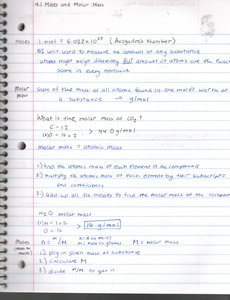 4.1 Moles and Molar Mass
Moles 1 mol = 6.022×10²³ (Avogadro's Number)
unit used to measure the amount of any substance
atoms might weigh differently BUT amount of atoms are the exact
same in every molecule
Molar Mass Sum of the mass of all atoms found in one mol worth of
a substance → g/mol
What is the molar mass of CO₂?
C = 12
(2)O = 16 × 2 > 44.0 g/mol
molar mass = atomic mass
1) find the atomic mass of each element in the compound
2) multiply the atomic mass of each element by their subscripts
and coefficients
3) add up all the masses to find the molar mass of the compound
H₂O molar mass
(2)H = 1 × 2
O = 16 > 18 g/mol
Moles n = m/M n = # of moles m = mass in grams M = molar mass
1) plug in given mass of substance
2) calculate M
3) divide m/M to get n